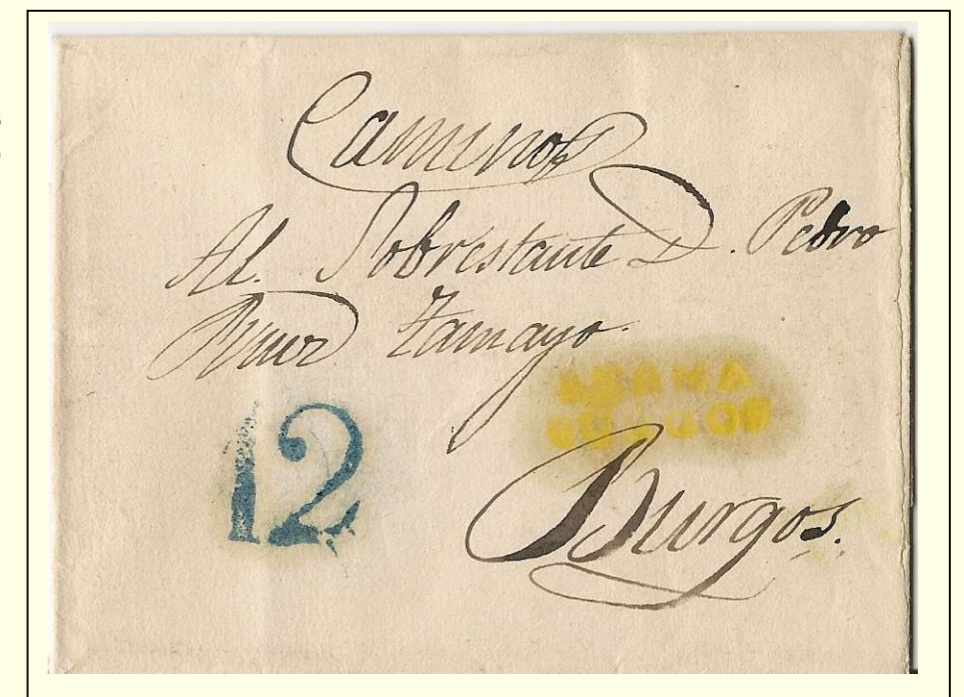 Caminos
Al Sobrestante D. Pedro
Tamayo.
LERMA
BURGOS
12
Burgos.